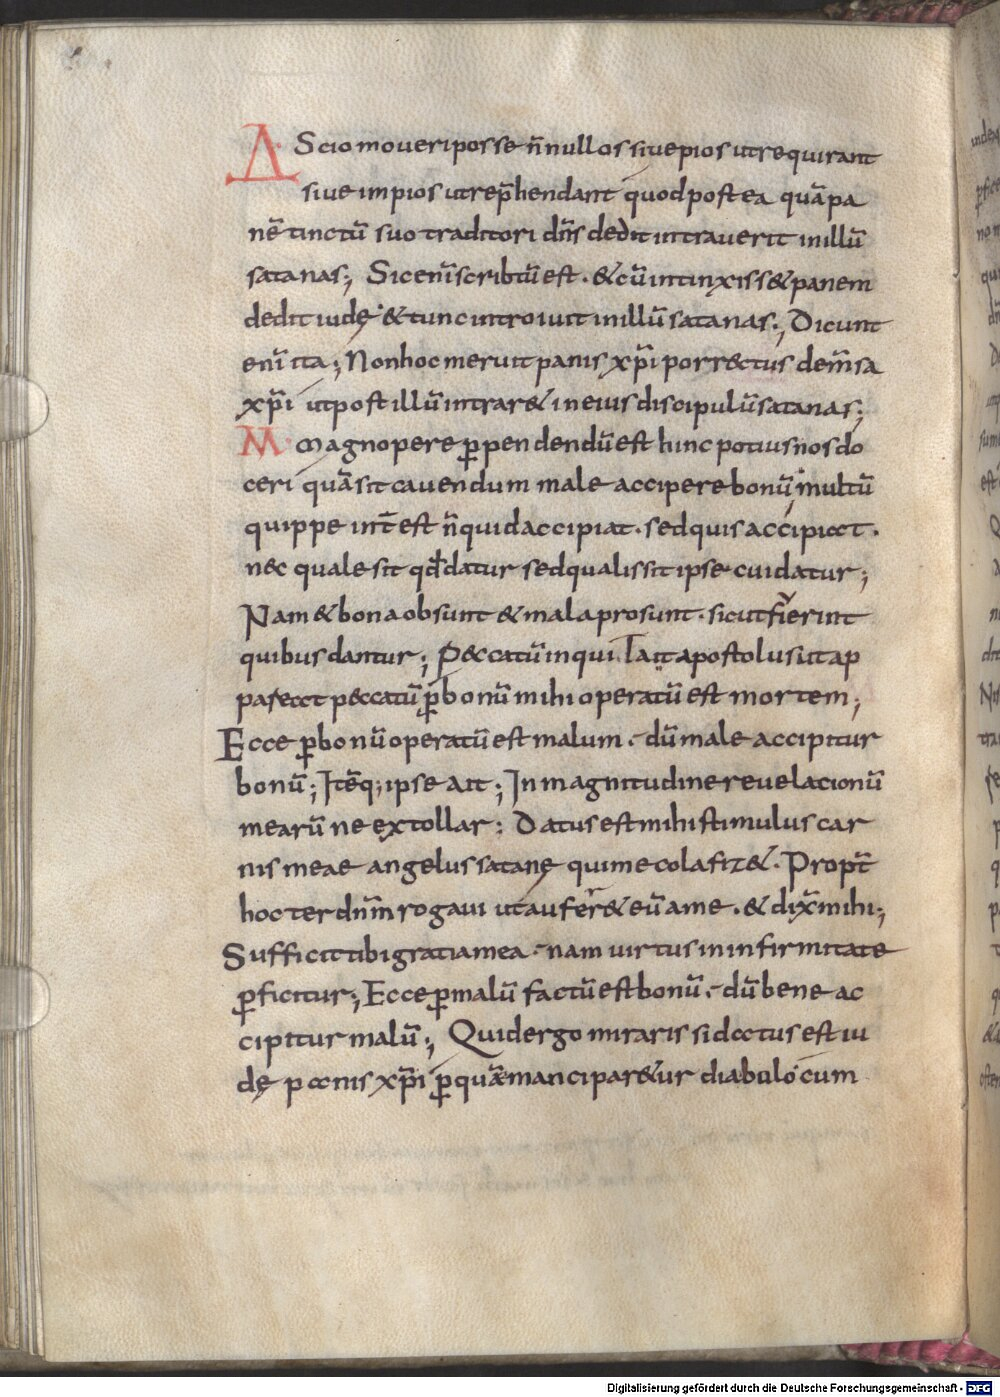 A Scio moueri posse n̄nullos siue pios ut requirant
siue impios ut rep̄hendant quod post ea quā pa
nē tinctū suo traditori dn̄s dedit intrauerit in illū
satanas; Sic enī scribtū est · & cū intinxiss& panem
dedit iudę · & tunc introiuit in illū satanas; Dicunt
enī ita; Non hoc meruit panis xp̄i porrectus de m̄sa
xp̄i ut post illū intrar& in eius discipulū satanas;
M Magnopere p̱pendendū est hinc potius nos do
ceri quā sit cauendum male accipere bonū · multū
quippe int̄est n̄ quid accipiat · sed quis accipiat ·
nec quale sit qđ datur sed qualis sit ipse cui datur;
Nam & bona obsunt & mala prosunt · sicut fierint
quibus dantur; P&catū inqui Tait apostolus ut ap
pareat p&catū p̱ bonū mihi operatū est mortem;
Ecce p̱ bonū operatū est malum · dū male accipitur
bonū; Itēq; ipse ait; In magnitudine reuelacionū
mearū ne extollar; Datus est mihi stimulus car
nis meae angelus satanę qui me colafiz& · Propt̄
hoc ter dn̄m rogaui ut aufer& eū a me · & dix̄ mihi;
Sufficit tibi gratia mea · nam uirtus in infirmitate
p̱ficitur; Ecce p̱ malū factū est bonū · dū bene ac
cipitur malū; Quid ergo miraris si datus est iu
dę panis xp̄i p̱ quē mancipar&ur diabulo cum
Digitalisierung gefördert durch die Deutsche Forschungsgemeinschaft - DFG